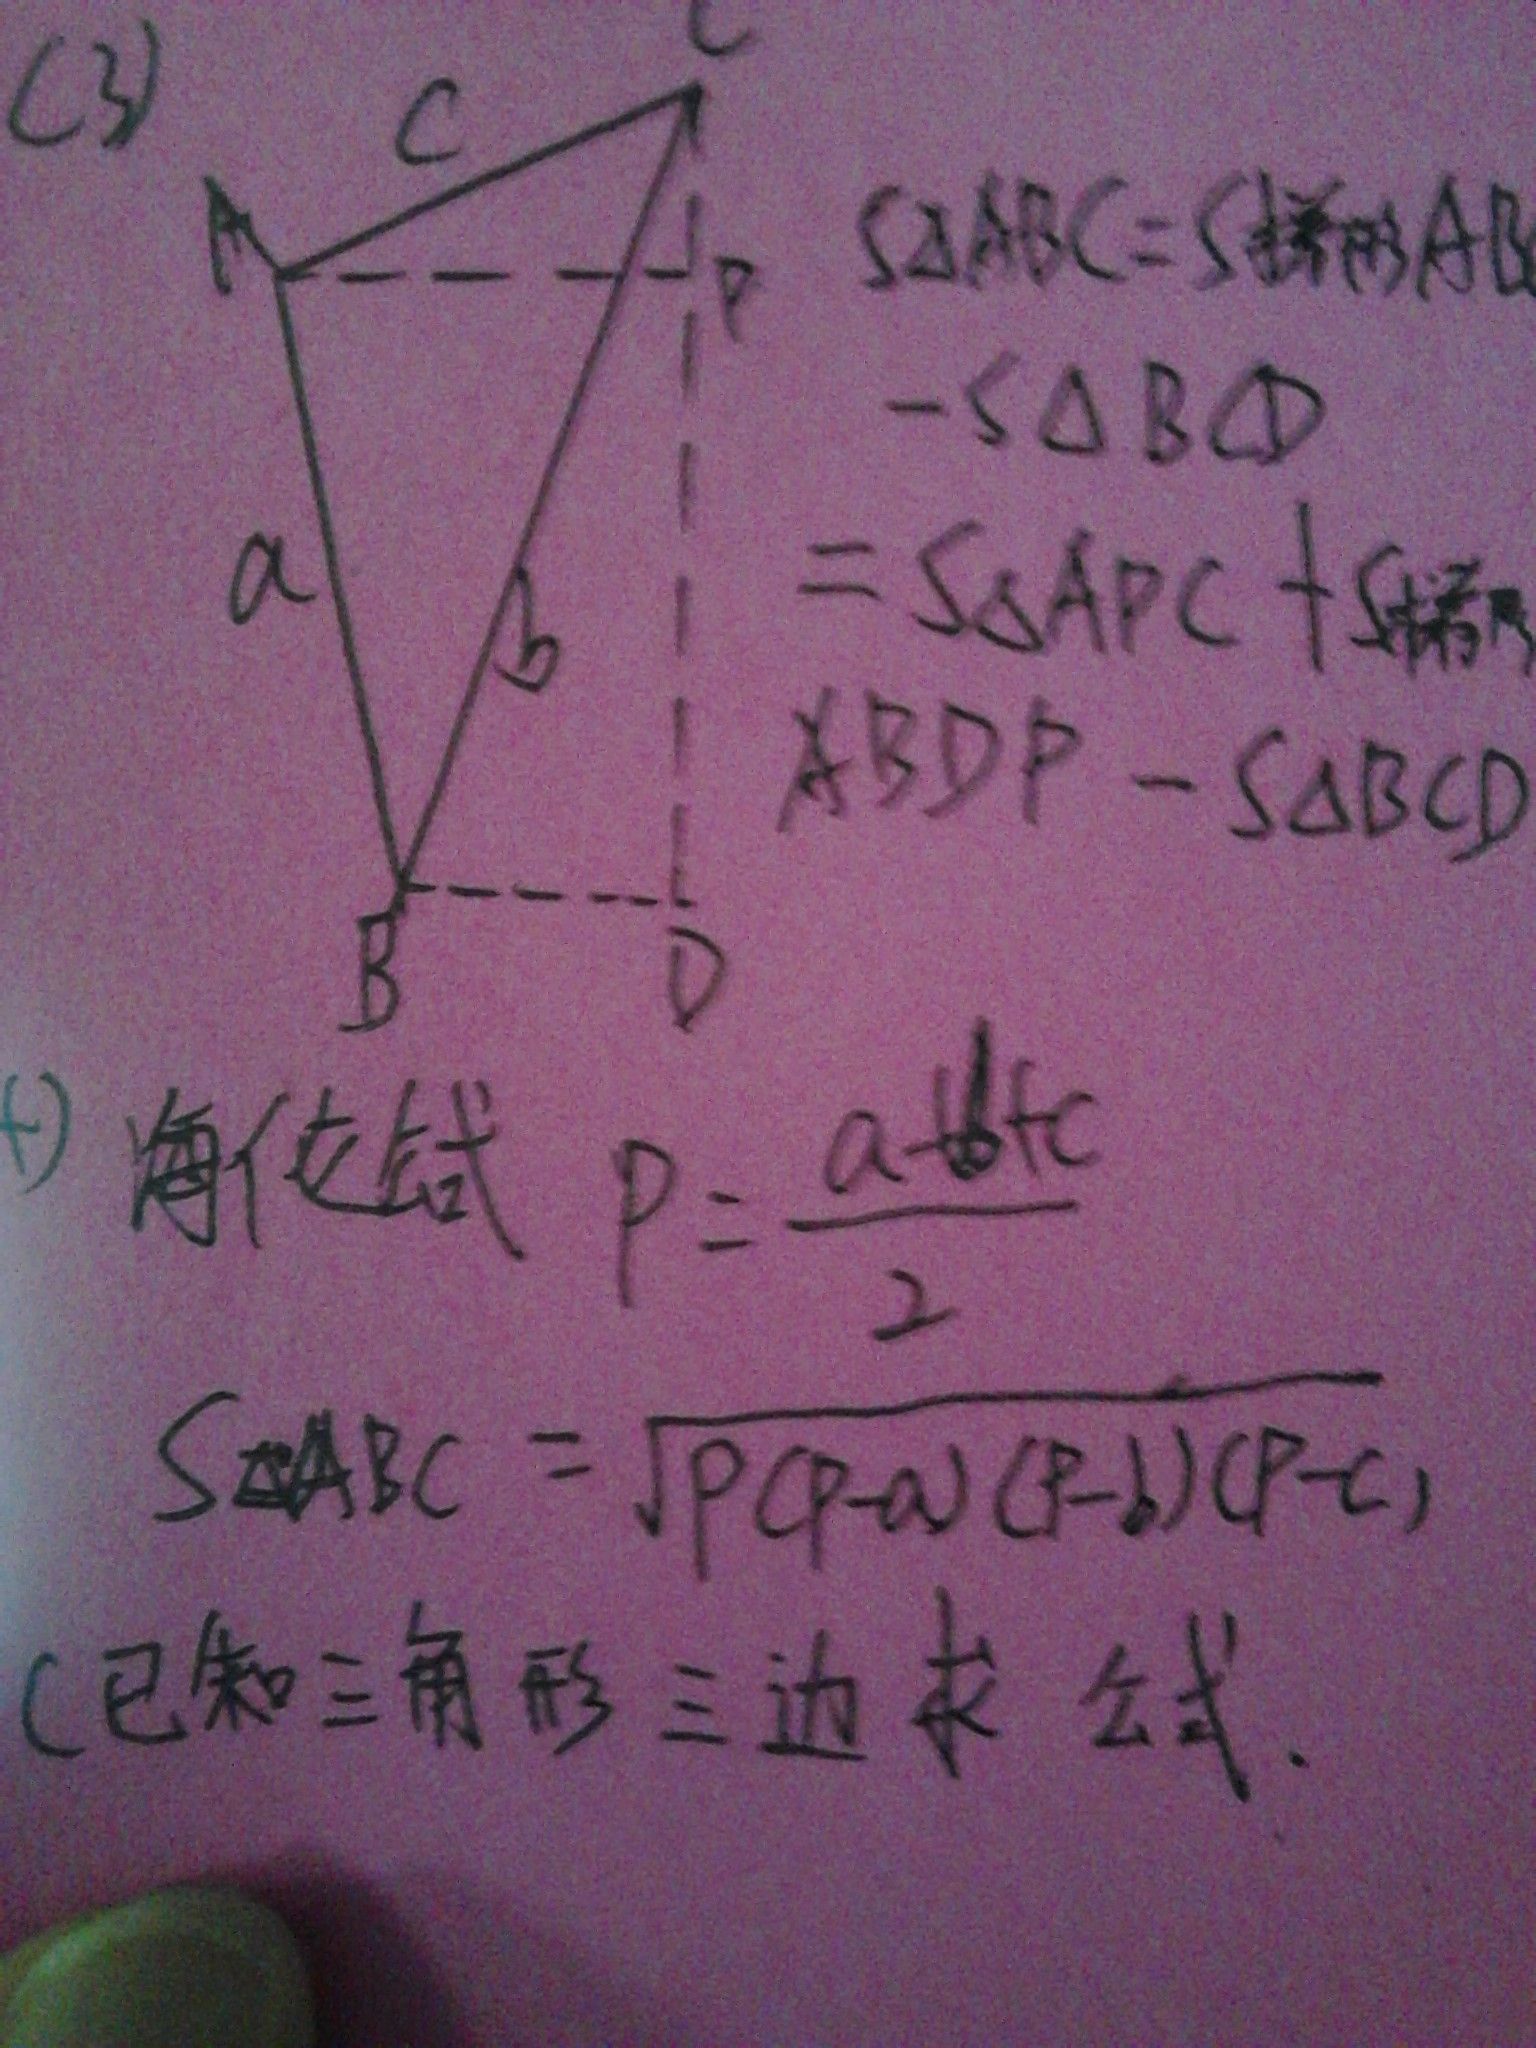 (3)
C
c
A
P
a
b
B
D
S△ABC=S梯形AB
-S△BCD
=S△APC+S梯形
ABDP-S△BCD
海伦公式 P=a+b+c/2
S△ABC=√P(P-a)(P-b)(P-c)
(已知三角形三边求公式.